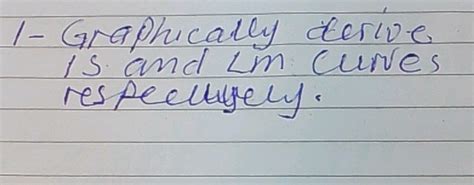 1- Graphically derive
IS and LM curves
respectively.